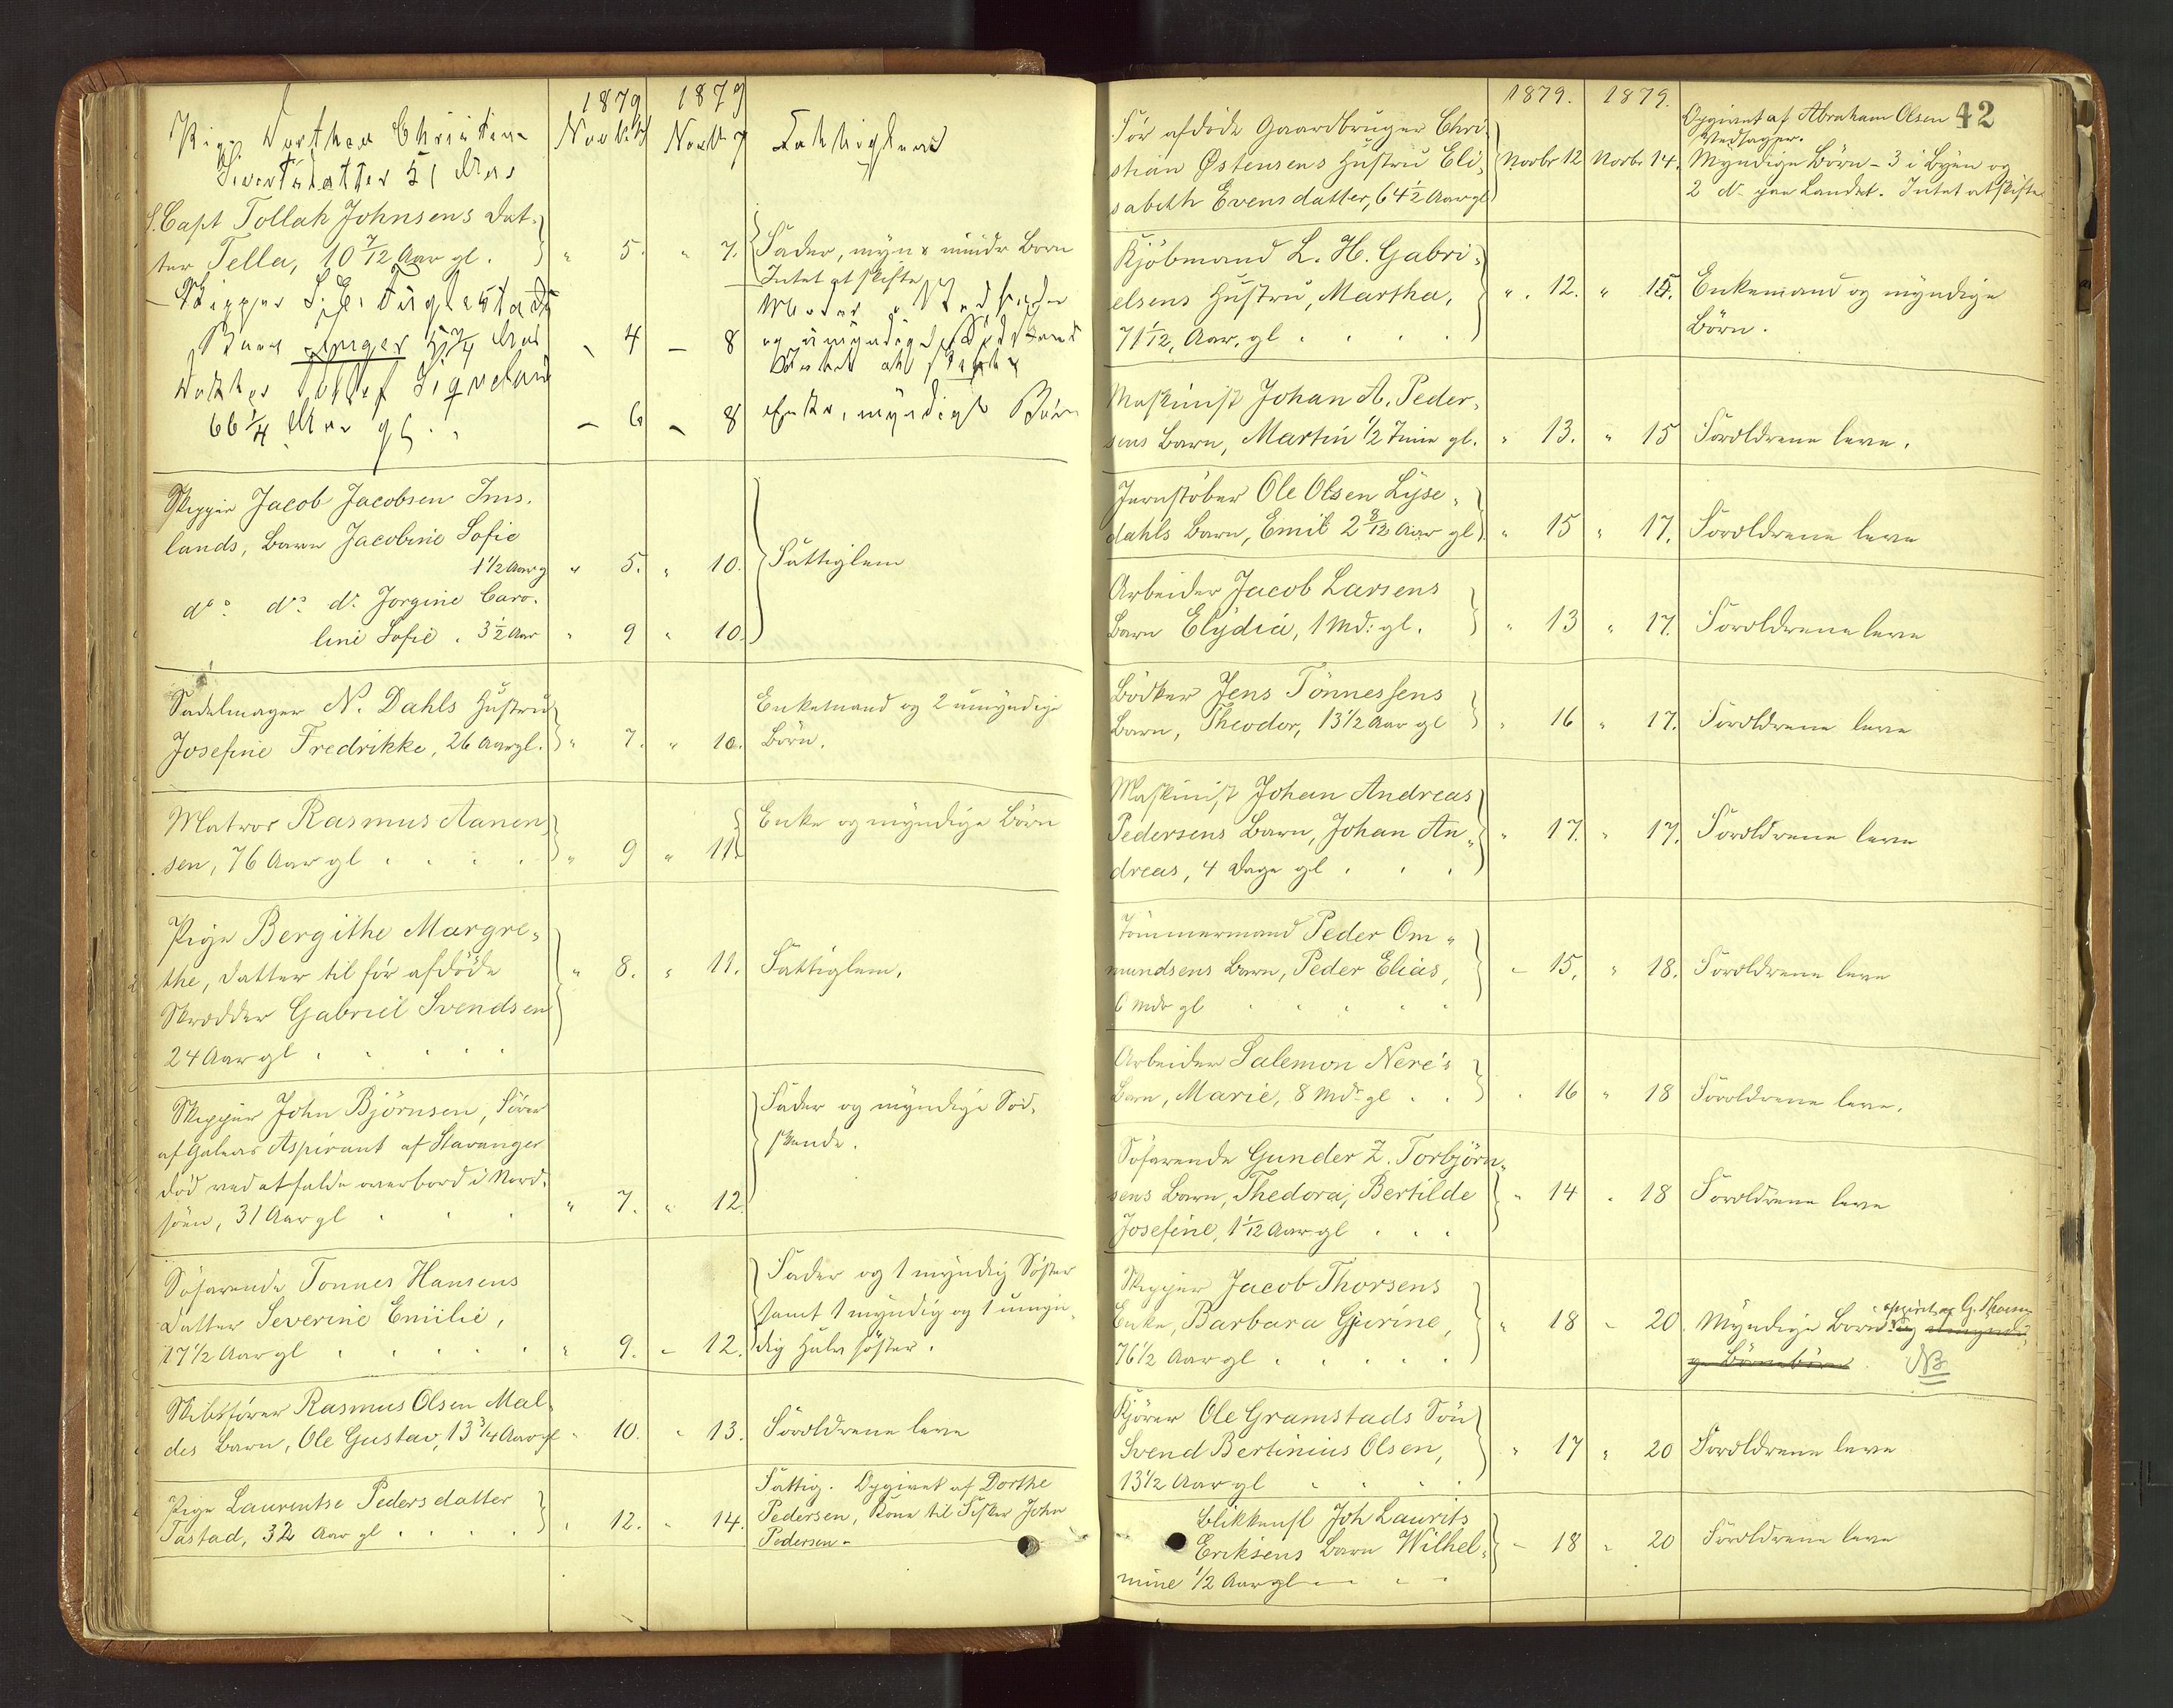 1879 1879
Pige Dorthea Christine Novbr 4 Novbr 7 Fattiglem
Sivertsdatter 51 Aar
S. Capt Tollak Johnsens Dat-
ter Tella, 10 7/12 Aar gl. " 5. " 7. Fader, mynd & umdr Børn
Intet at skifte
Skipper
Barn Inger Aar - 4 - 8 og umyndige Sødskende
Intet at skifte
Tollef Sigveland
66 1/4 Aar gl - 6 - 8 Enke, myndige Børn
Skipper Jacob Jacobsen Ims-
lands, Barn Jacobine Sofie
1 1/2 Aar g " 5. " 10. Fattiglem
do do do Jorgine Caro-
line Sofie . 3 1/2 Aar " 9 " 10.
Sadelmager N. Dahls Hustru Enkemand og 2 umyndige
Josefine Fredrikke, 26 Aar gl. " 7. " 10. Børn.
Matros Rasmus Aanen- Enke og myndige Børn
sen, 76 Aar gl . . . . " 9 " 11.
Pige Bergithe Margre-
the, Datter til før afdøde " 8. " 11. Fattiglem.
Skrædder Gabriel Svendsen
24 Aar gl . . . . .
Skipper John Bjørnsen, Fører Fader og myndige Sød-
af Galeas Aspirant af Stavanger skende.
død ved at falde overbord i Nord-
søen, 31 Aar gl . . . " 7. " 12.
Søfarende Tønnes Hansens Fader og 1 myndig Søster
Datter Severine Emilie, samt 1 myndig og 1 umyn-
17 1/2 Aar gl . . . . . " 9. " 12. dig Halvsøster.
Skibsfører Rasmus Olsen Mal-
des Barn, Ole Gustav, 13 3/4 Aar gl " 10. " 13. Forældrene leve
Pige Laurentse Pedersdatter Fattig. Opgivet af Dorthe
Tastad, 32 Aar gl . . . . " 12. " 14. Pedersen, Kone til Fisker John
Pedersen -
1879. 1879. 42
Før afdøde Gaardbruger Chri- Opgivet af Abraham Olsen
Vedsager.
stian Østensens Hustru Eli- Novbr 12 Novbr 14. Myndige Børn - 3 i Byen og
sabeth Evensdatter, 64 1/2 Aar gl 2 do paa Landet. Intet at skifte
Kjøbmand L. H. Gabri-
elsens Hustru, Martha, " . 12. " 15. Enkemand og myndige
71 1/12, Aar. gl . . . . Børn.
Maskinist Johan A. Peder-
sens Barn, Martin 1/2 Time gl. " 13. " 15 Forældrene leve.
Jernstøber Ole Olsen Lyse-
dahls Barn, Emil 2 8/12 Aar gl " 15 " 17. Forældrene leve
Arbeider Jacob Larsens
Barn Elydia, 1 Md: gl. " 13 " 17. Forældrene leve
Bødker Jens Tønnessens
Barn, Theodor, 13 1/2 Aar gl " 16 " 17. Forældrene leve
Maskinist Johan Andreas
Pedersens Barn, Johan An- " 17. " 17. Forældrene leve
dreas, 4 Dage gl . . .
Tømmermand Peder Om-
mundsens Barn, Peder Elias, - 15. " 18. Forældrene leve
6 Mdr gl . . . . .
Arbeider Salemon Nere's
Barn, Marie, 8 Mdr gl . . . 16 " 18 Forældrene leve.
Søfarende Gunder Z. Torbjørn-
sens Barn, Thedora, Bertilde " 14 " 18 Forældrene leve
Josefine, 1 1/12 Aar gl . . .
Skipper Jacob Thorsens
Enke, Barbara Gurine, " 18 - 20. Myndige Børn opgivet af G. Thorsen og umyndi-
76 1/2 Aar gl . . . . . ge Børnebørn. NB
Kjører Ole Gramstads Søn
Svend Bertinius Olsen, " 17 " 20 Forældrene leve
13 1/2 Aar gl . . . .
Blikkensl Joh Laurits
Eriksens Barn Wilhel- - 18 " 20 Forældrene leve
mine 1/2 Aar gl - - - -